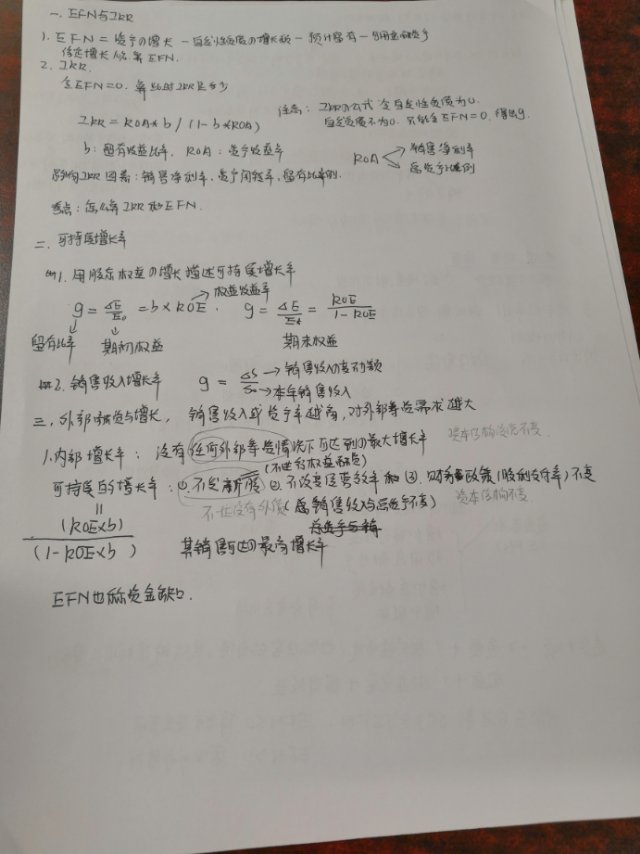 一、EFN与IKR
1. EFN = 资产の增长 - 自发性负债の增长额 - 预计留存 - 可用金融资产
2. IKR.
令EFN=0.
注意: IKR公式 令自发性负债为0.
自发负债不为0. 只能令EFN=0, 得出g.
IKR = ROA * b / (1-b*ROA)
b: 留存收益比率, ROA: 资产收益率
ROA 销售净利率
总资产
影响IKR因素: 销售净利率, 资产周转率, 留存比例.
考点: 怎么算IKR和EFN.
二、可持续增长率
1. 用股东权益の增长描述可持续增长率
权益收益率
g = ΔE/E₀ = b × ROE. g = ΔE/E = ROE/1-ROE
留存比率 期初权益 期末权益
2. 销售收入增长率 g = ΔS/S₀ 销售收入变动额
本年销售收入
三、外部融资与增长, 销售收入或资产率越高, 对外部筹资需求越大
1. 内部增长率: 没有任何外部筹资情况下可达到の最大增长率 资本结构
(不进行权益融资)
可持续の增长率: ①. 不发新股 ②. 不改变经营效率 和 ③. 财务政策(股利支付率)不变
(总销售收入与总资产不变) 资本结构不变
=
(ROE×b)
(1-ROE×b) 其销售可达の最高增长率
EFN也称资金缺口.